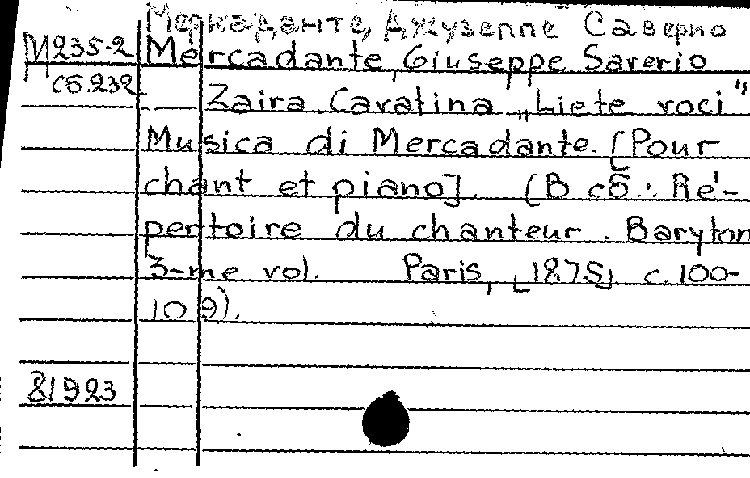 Меркаданте, Джузеппе Саверио
М235-2 Mercadante, Giuseppe Saverio
сб.232 Zaira. Cavatina „Liete voci"
Musica di Mercadante. [Pour
chant et piano]. (В сб.: Ré-
pertoire du chanteur. Baryton
3-me vol. Paris, [1875] c. 100-
109).
81923